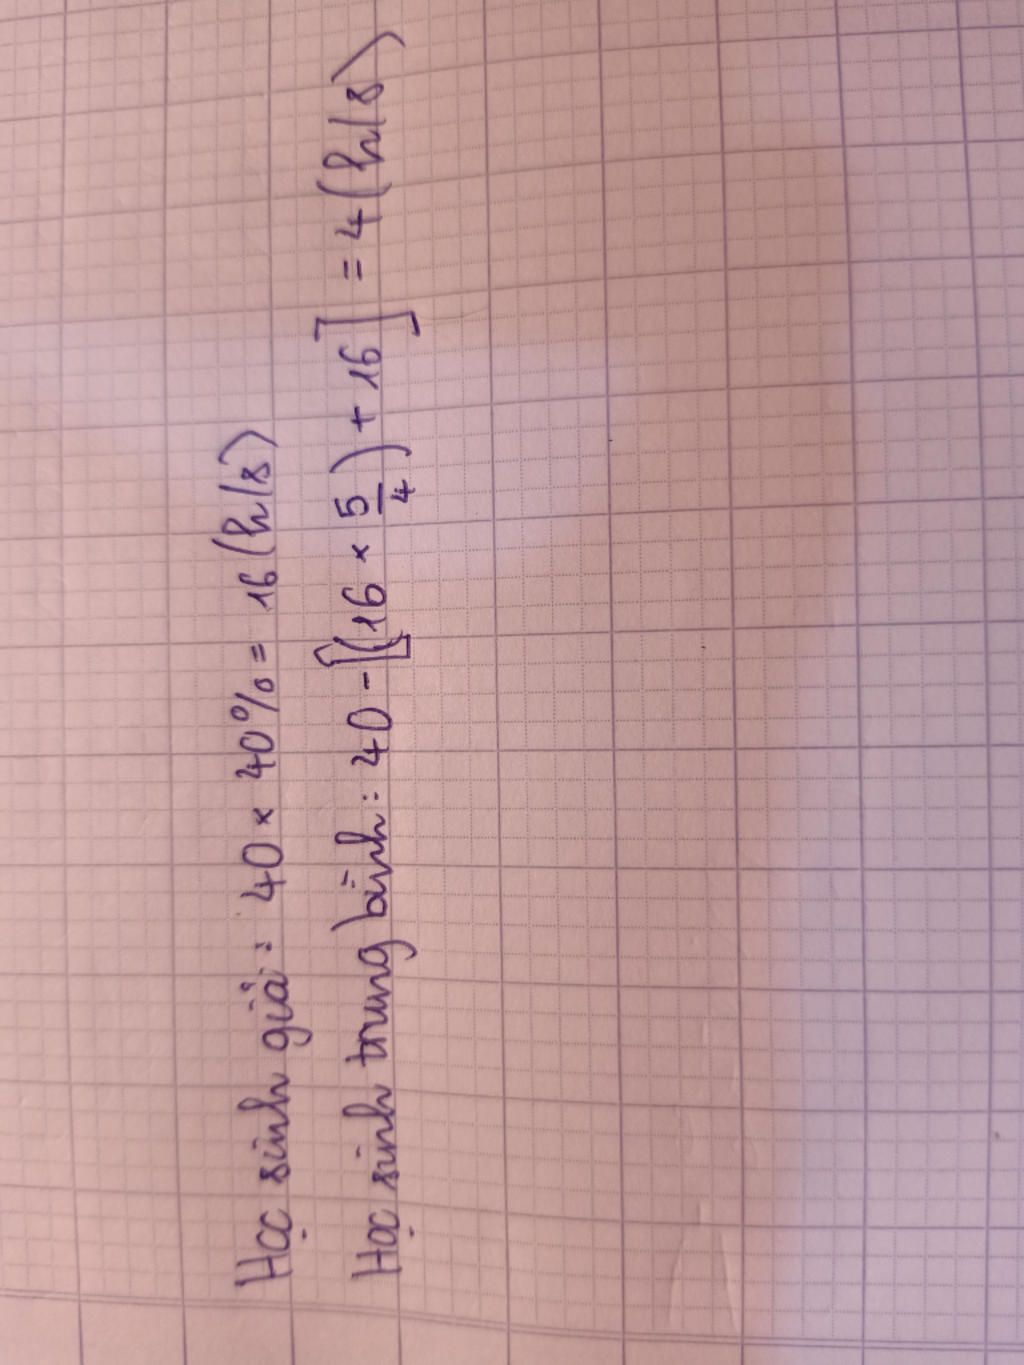 Học sinh giỏi : 40 × 40% = 16 (h/s)
Học sinh trung bình : 40 - [(16 × 5/4) + 16] = 4 (h/s)